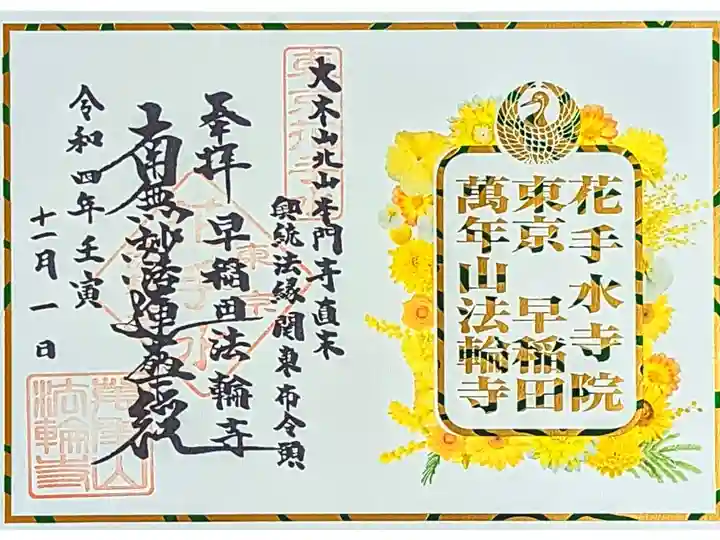 花手水寺院
東京 早稲田
萬年山法輪寺
大本山北山本門寺直末
興統法縁関東布令頭
奉拝 早稲田法輪寺
南無妙法蓮華経
令和四年壬寅
十一月一日
東京
花手水
萬年山
法輪寺